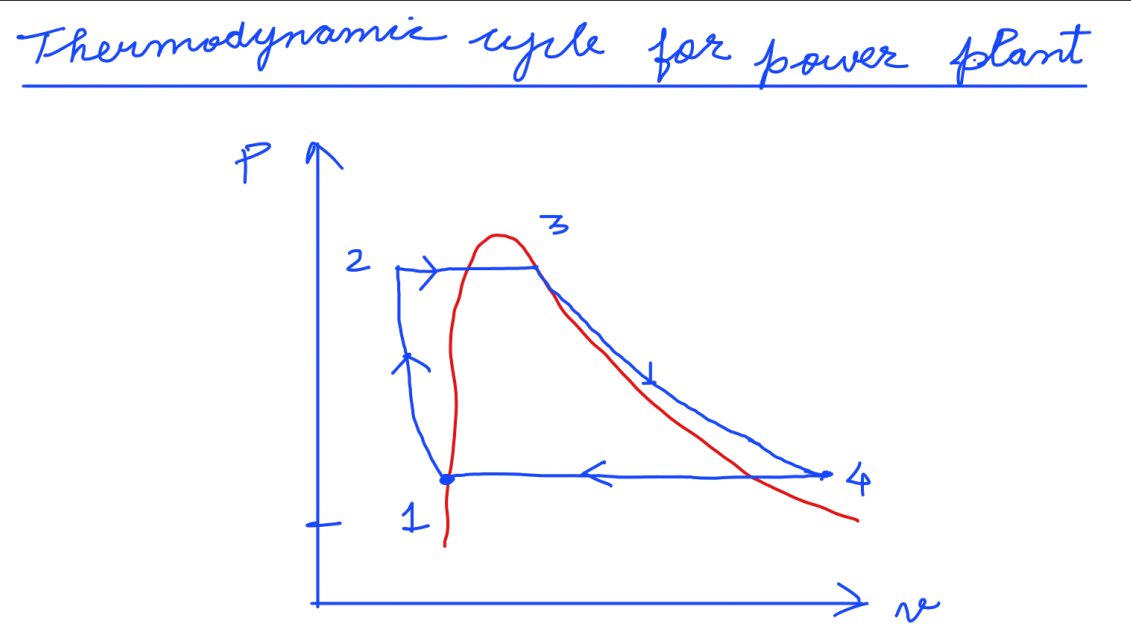 Thermodynamic cycle for power plant
P
3
2
4
1
v